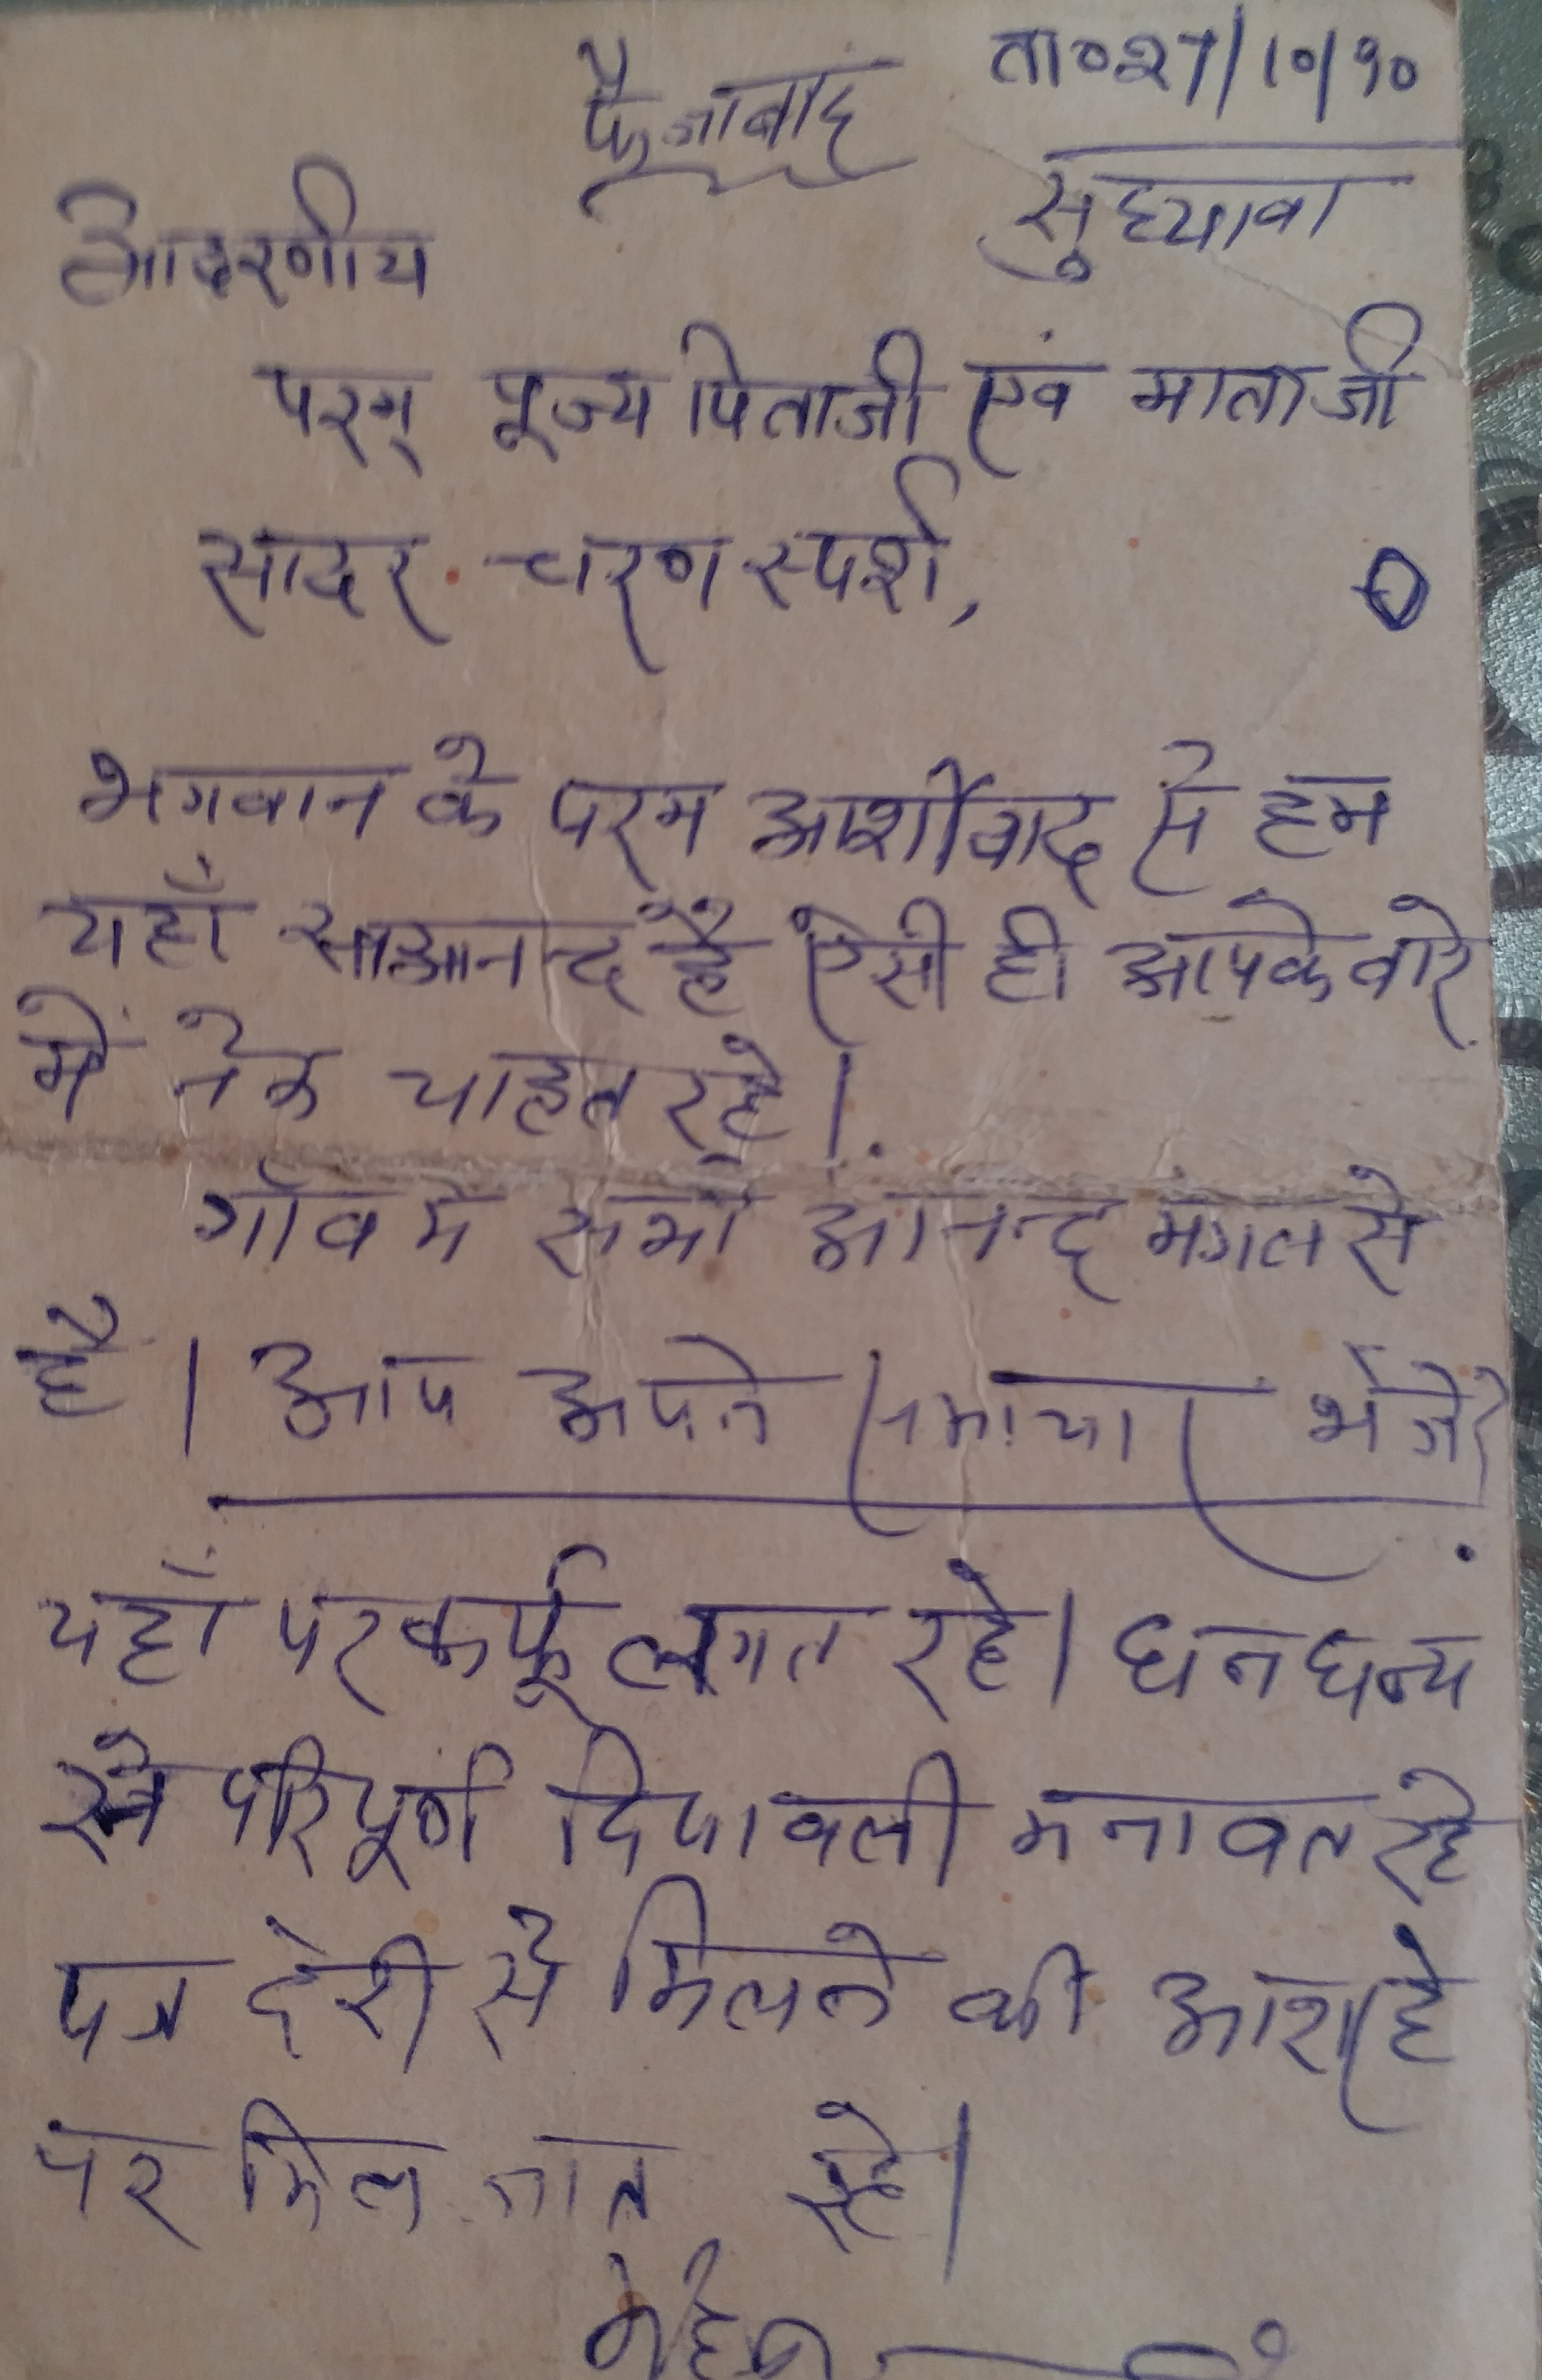 फैजाबाद ता० 27/10/90
आदरणीय
परम् पूज्य पिताजी एवं माताजी
सादर चरण स्पर्श,
भगवान के परम आर्शीवाद से हम
यहाँ साआनन्द है ऐसी ही आपके बारे
में नेक चाहत रहे।
गाँव मे सभी आनन्द मंगल से
है। आप अपने समाचार भेजे
यहाँ पर कर्फू लगत रहे। धन धन्य
से परिपूर्ण दिपावली मनावत रहे
पत्र देरी से मिलने की आशा है
पर मिल जात रहे।